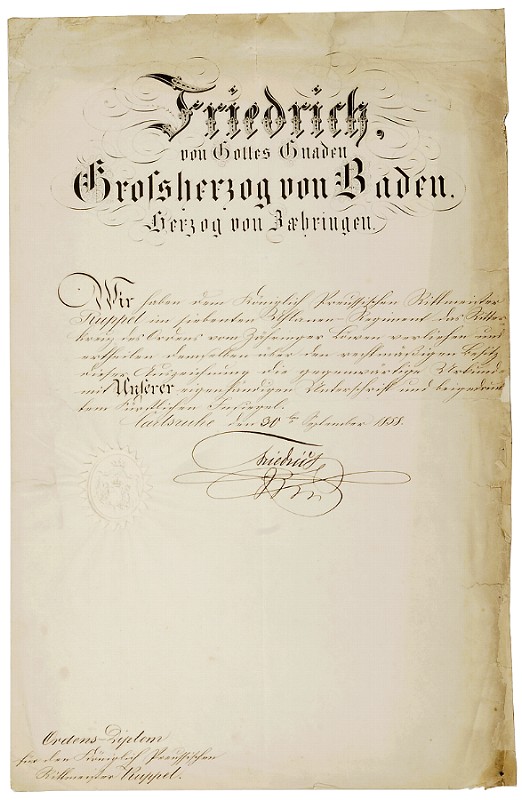 Friedrich,
von Gottes Gnaden
Grossherzog von Baden.
Herzog von Zæhringen.
Wir haben dem Königlich Preussischen Rittmeister
Ruppel im siebenten Uhlanen-Regiment das Ritter-
kreuz des Ordens vom Zähringer Löwen verliehen und
ertheilen demselben über den rechtmäßigen Besitz
dieser Auszeichnung die gegenwärtige Urkunde
mit Unserer eigenhändigen Unterschrift und beigedruck-
tem Fürstlichen Insiegel.
Karlsruhe den 30ten September
Friedrich
Ordens-Diplom
für den Königlich Preussischen
Rittmeister Ruppel.